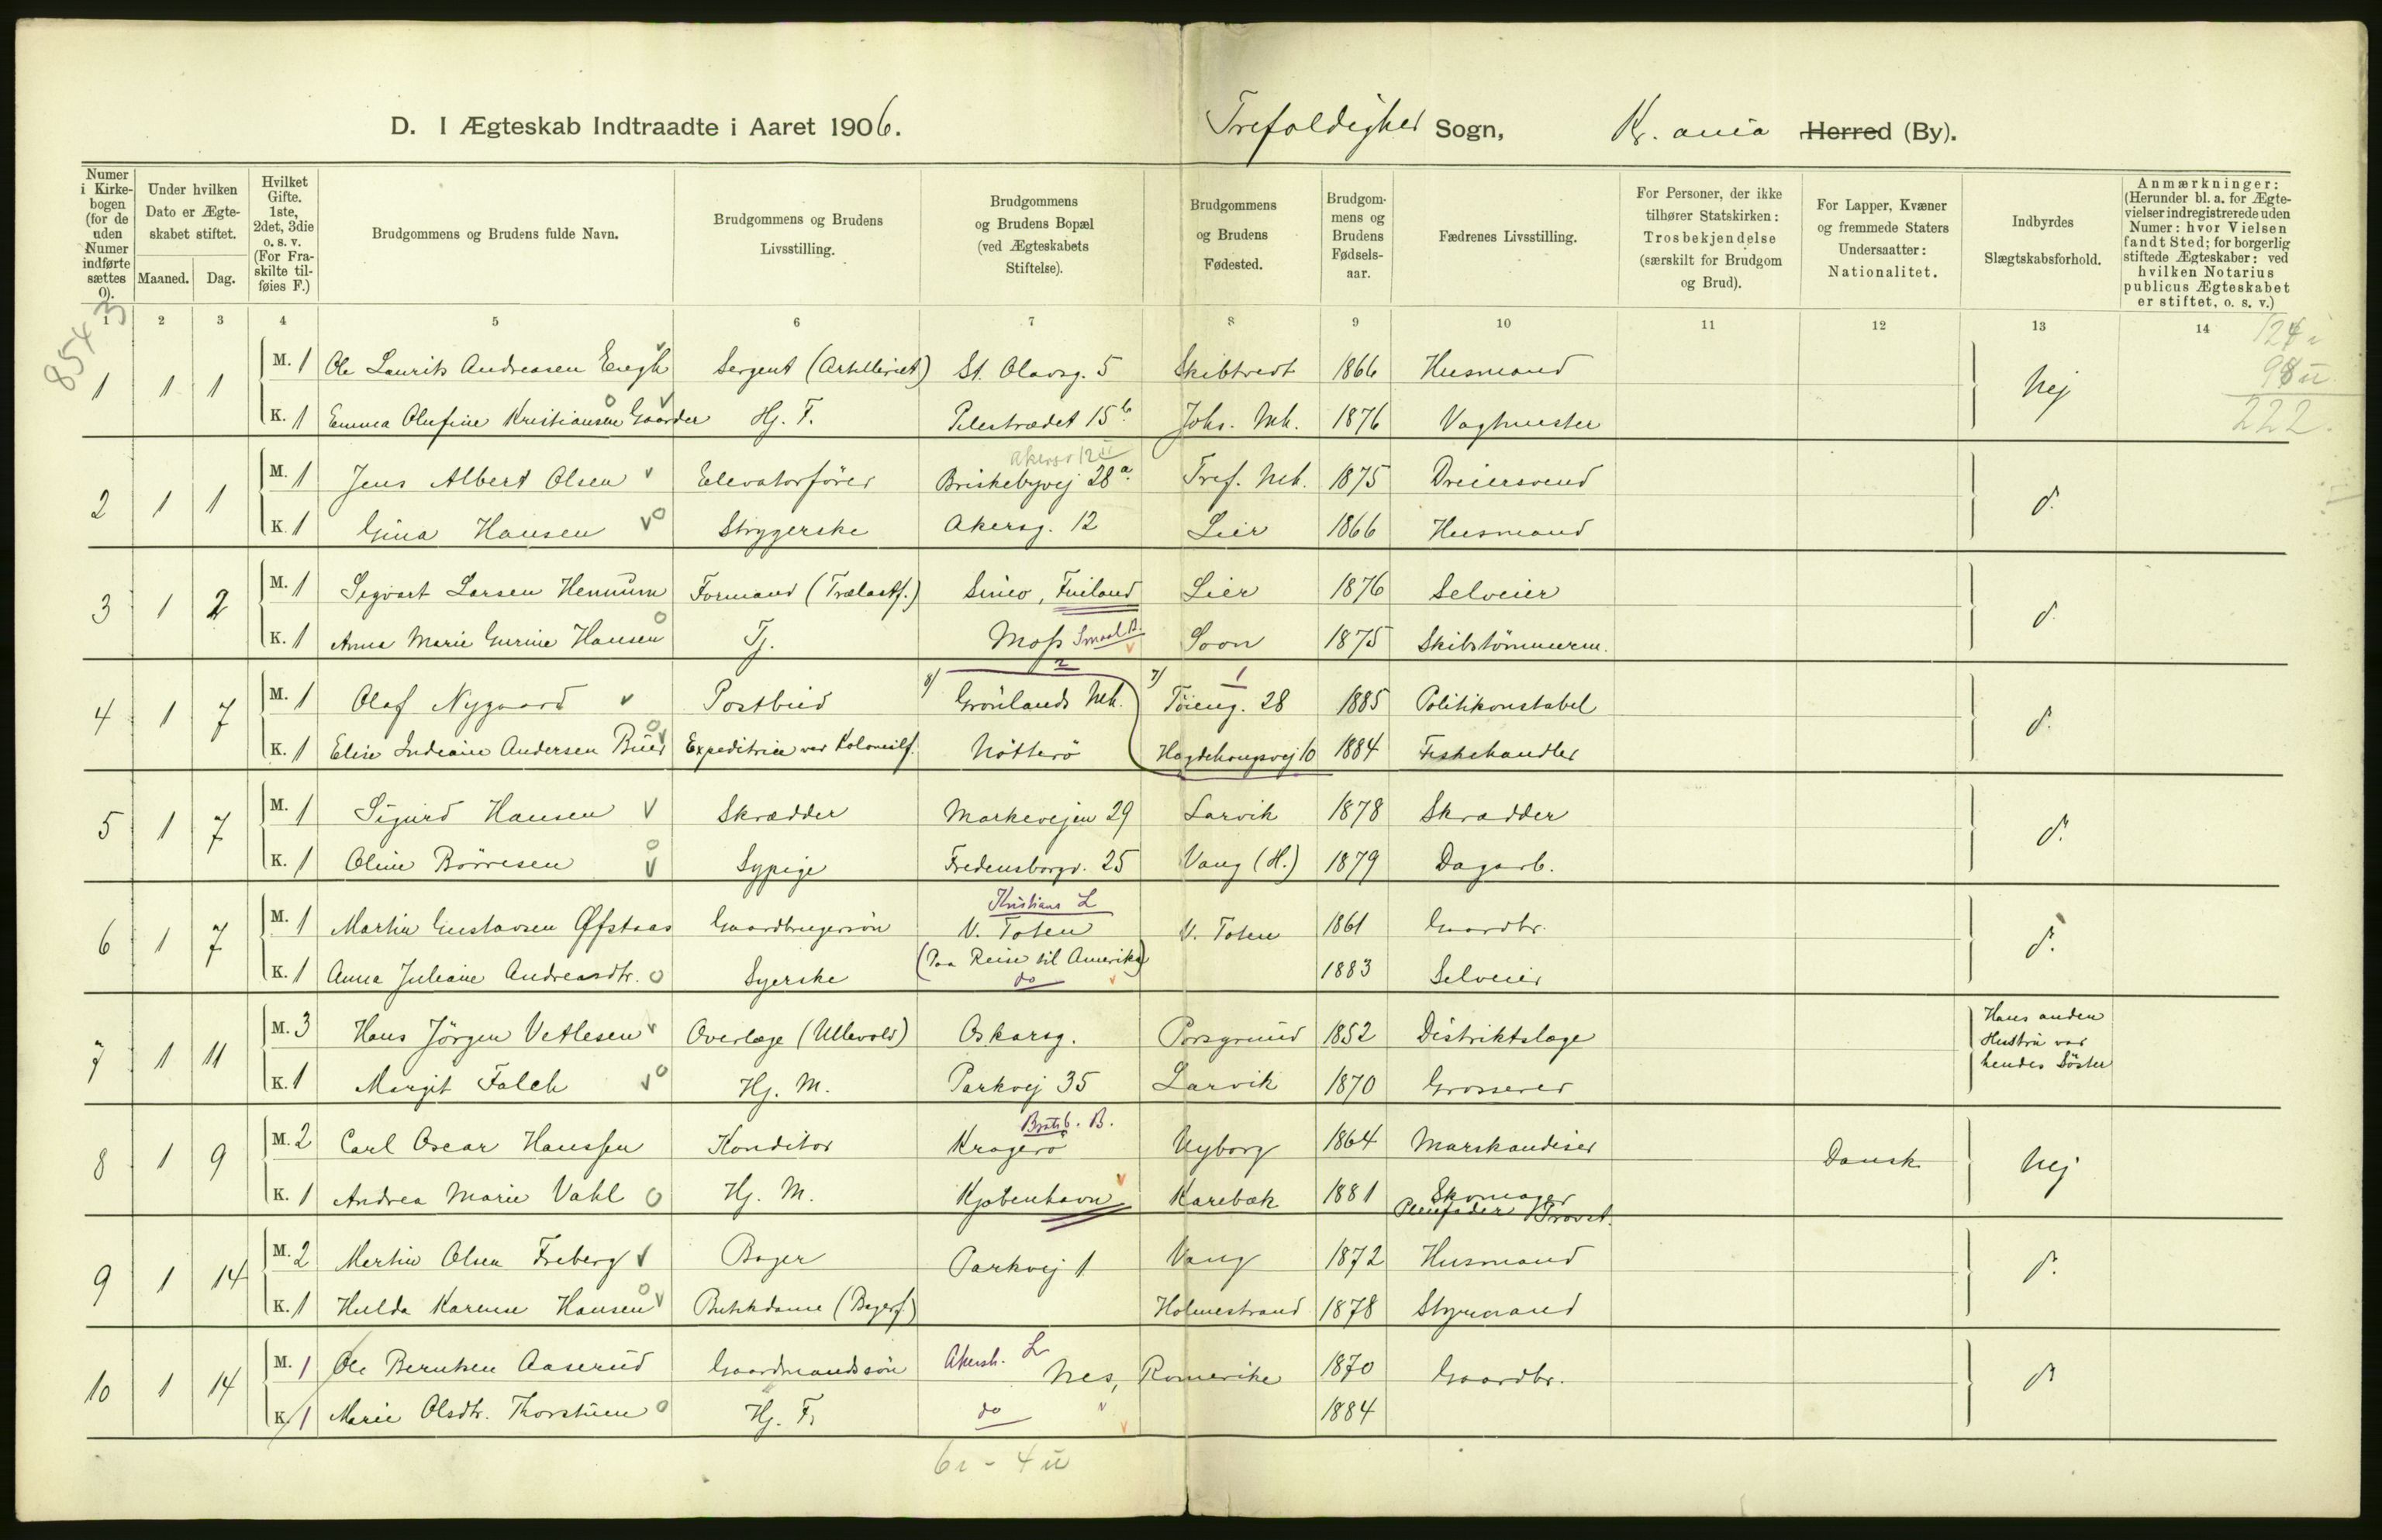 D. I Ægteskab Indtraadte i Aaret 1906. Trefoldighed Sogn, Kr.ania Herred (By).
Numer i Kirkebogen (for de uden Numer indførte sættes 0).
Under hvilken Dato er Ægteskabet stiftet.
Maaned. Dag.
Hvilket Gifte. 1ste, 2det, 3die o. s. v. (For Fraskilte tilføies F.)
Brudgommens og Brudens fulde Navn.
Brudgommens og Brudens Livsstilling.
Brudgommens og Brudens Bopæl (ved Ægteskabets Stiftelse).
Brudgommens og Brudens Fødested.
Brudgommens og Brudens Fødselsaar.
Fædrenes Livsstilling.
For Personer, der ikke tilhører Statskirken: Trosbekjendelse (særskilt for Brudgom og Brud).
For Lapper, Kvæner og fremmede Staters Undersaatter: Nationalitet.
Indbyrdes Slægtskabsforhold.
Anmærkninger: (Herunder bl. a. for Ægtevielser indregistrerede uden Numer: hvor Vielsen fandt Sted; for borgerlig stiftede Ægteskaber: ved hvilken Notarius publicus Ægteskabet er stiftet, o. s. v.)
1 2 3 4 5 6 7 8 9 10 11 12 13 14
8543
222.
1 1 1 M. 1 Ole Laurits Andreasen Engh Sergent (Artilleriet) St. Olavsg. 5 Skibtvedt 1866 Husmand Nej
K. 1 Emma Olufine Kristiansen Gaarder Hj. F. Pilestrædet 15b Johs. Mh. 1876 Vagtmester
Akersg 12
2 1 1 M. 1 Jens Albert Olsen Elevatorfører Briskebyvej 28a Tref. Mh. 1875 Dreiersvend d.
K. 1 Gina Hansen Strygerske Akersg. 12 Lier 1866 Husmand
3 1 2 M. 1 Sigvart Larsen Hennum Formand (Trælastf.) Simo, Finland Lier 1876 Selveier d.
K. 1 Anna Marie Gurine Hansen Tj. Moss Smaal. A. Soon 1875 Skibstømmerm.
4 1 7 M. 1 Olaf Nygaard Postbud 8) 2 Grønlands Mh. 7) 1 Tøieng. 28 1885 Politikonstabel d.
K. 1 Elise Indiane Andersen Buer Expeditrice ved Kolonialf. Nøtterø Hagdehougsvej 10 1884 Fiskehandler
5 1 7 M. 1 Sigurd Hansen Skrædder Markvejen 29 Larvik 1878 Skrædder d.
K. 1 Oline Børresen Sypige Fredensborgv. 25 Vang (H.) 1879 Dagarb.
Kristians L
6 1 7 M. 1 Martin Gustavsen Øfstaas Gaardbrugersøn V. Toten V. Toten 1861 Gaardbr. d.
(Paa Reise til Amerika)
K. 1 Anna Juliane Andreasdtr. Syerske do 1883 Selveier
7 1 11 M. 3 Hans Jørgen Vetlesen Overlæge (Ullevold) Oskarsg. Porsgrund 1852 Distriktslæge Hans anden Hustru var hendes Søster
K. 1 Margit Falch Hj. M. Parkvej 35 Larvik 1870 Grosserer
Bratsb. B.
8 1 9 M. 2 Carl Oscar Hanssen Konditor Kragerø Nyborg 1864 Marskandiser Dansk Nej
K. 1 Andrea Marie Vahl Hj. M. Kjøbenhavn Karebæk 1881 Skomager
Pleiefader Provst.
9 1 14 M. 2 Martin Olsen Freberg Bager Parkvej 1 Vang 1872 Husmand d.
K. 1 Hulda Karense Hansen Butikdame (Bagerf.) Holmestrand 1878 Styrmand
10 1 14 M. 1 Ole Berntsen Aaserud Gaardmandssøn Akersh. L Nes, Romerike 1870 Gaardbr. d
K. 1 Marie Olsdtr. Thorstuen Hj. F. do " 1884